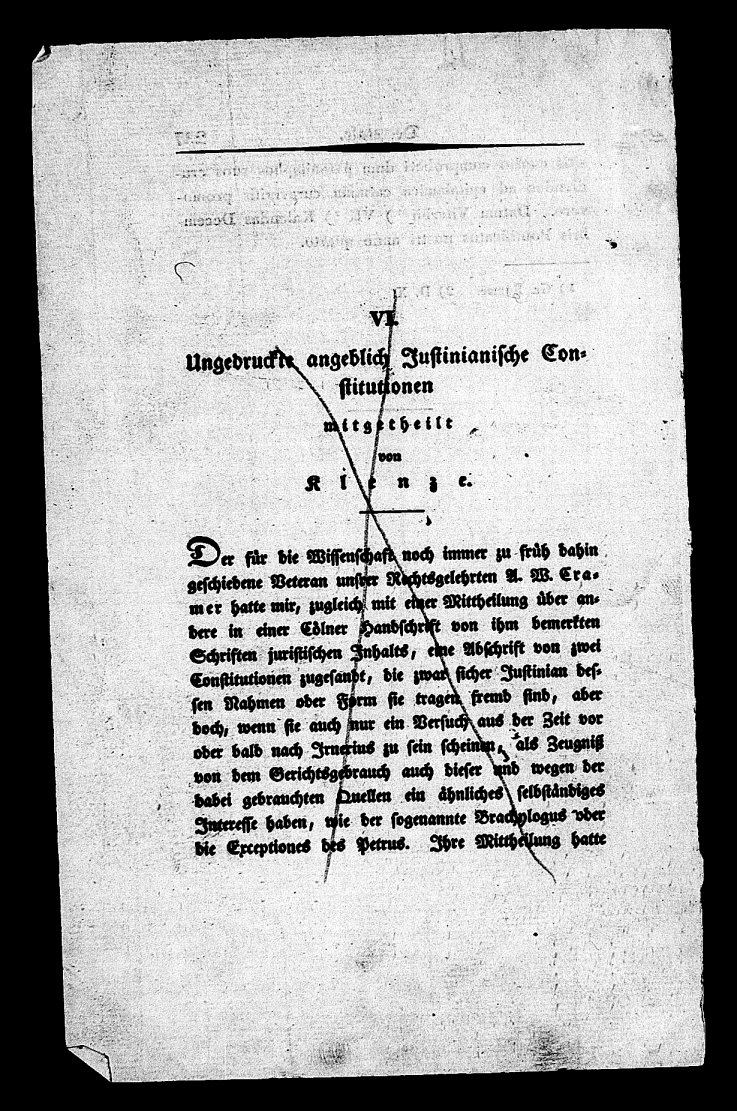 VI.
Ungedruckte angeblich Justinianische Con-
stitutionen
mitgetheilt
von
Klenze.
Der für die Wissenschaft noch immer zu früh dahin
geschiedene Veteran unsrer Rechtsgelehrten A. W. Cra-
mer hatte mir, zugleich mit einer Mittheilung über an-
dere in einer Cölner Handschrift von ihm bemerkten
Schriften juristischen Inhalts, eine Abschrift von zwei
Constitutionen zugesandt, die zwar sicher Justinian des-
sen Nahmen oder Form sie tragen fremd sind, aber
doch, wenn sie auch nur ein Versuch aus der Zeit vor
oder bald nach Irnerius zu sein scheinen, als Zeugniß
von dem Gerichtsgebrauch auch dieser und wegen der
dabei gebrauchten Quellen ein ähnliches selbständiges
Interesse haben, wie der sogenannte Brachylogus oder
die Exceptiones des Petrus. Ihre Mittheilung hatte